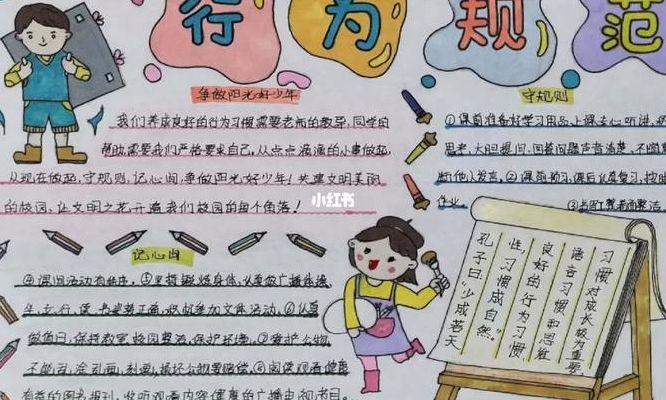 行为规范
争做阳光好少年
我们养成良好的行为习惯需要老师的教导,同学的
帮助,需要我们严格要求自己,从点点滴滴的小事做起,
从现在做起,守规则,记心间,争做阳光好少年!共建文明美丽
的校园,让文明之花开遍我们校园的每个角落!
守规则
①课前准备好学习用品,上课专心听讲,
思考,大胆提问,回答问题声音清楚,不随意
断他人发言。②课前预习,课后认真复习,按
作业
③
小红书
记心间
④课间活动有秩序。⑤坚持锻炼身体,认真做广播体操,
积极参加文体活动。⑥认真
做值日,保持教室校园整洁,保护环境。⑦爱护公物,
不能乱涂乱画,刻画,损坏公物要赔偿。⑧阅读观看健康
有益的图书报刊,收听观看内容健康的广播电视节目。
习惯对成长极为重要
语言习惯和思维
良好的行为习惯
性,习惯成自然。
孔子曰“少成若天